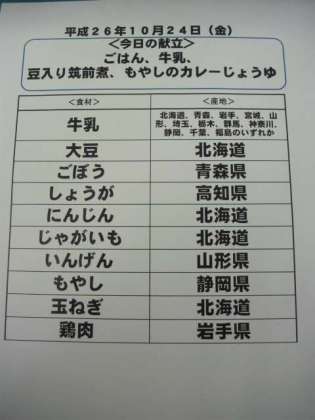 平成26年10月24日（金）
＜今日の献立＞
ごはん、牛乳、
豆入り筑前煮、もやしのカレーじょうゆ
＜食材＞ ＜産地＞
牛乳 北海道、青森、岩手、宮城、山
形、埼玉、栃木、群馬、神奈川、
静岡、千葉、福島のいずれか
大豆 北海道
ごぼう 青森県
しょうが 高知県
にんじん 北海道
じゃがいも 北海道
いんげん 山形県
もやし 静岡県
玉ねぎ 北海道
鶏肉 岩手県